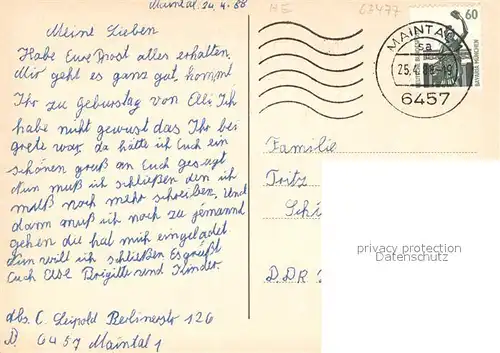 Maintal, 24.4.88
Meine Lieben
Habe Eure Post alles erhalten,
Mir geht es ganz gut, kommt
Ihr zu Geburstag von Eli Ich
habe nicht gewust das Ihr bei
grete war, da hätte ich Euch ein
schönen gruß an Euch gesagt
Nun muß ich schließen den ich
muß noch mehr schreiben, Und
dann muß ich noch zu jemannt
gehen die hat mich eingeladet
Nun will ich schließen Es grüßt
Euch Else Brigitte und Kinder.
Abs. C. Leipold Berlinerstr 126
D. 6457 Maintal 1
63477
MAINTAL
sa
25.4.88-19
6457
60
BAVARIA MÜNCHEN
DEUTSCHE BUNDESPOST
Familie
Fritz
Schi
DDR
privacy protection
Datenschutz